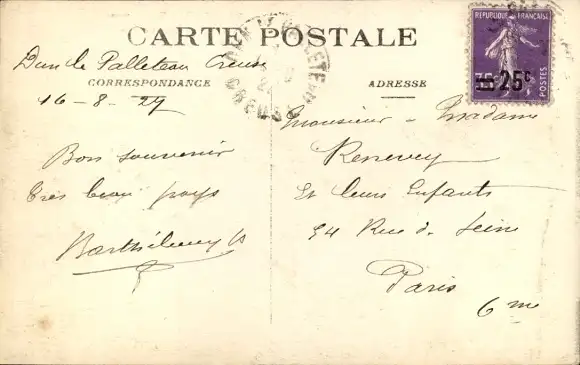 CARTE POSTALE
Dun le Palleteau Creuse
CORRESPONDANCE
16-8-27
Bon souvenir
très beau pays
Barthélemy
ADRESSE
Monsieur - Madame
Renevey
et leurs Enfants
54 Rue de Seine
Paris
6 me
REPUBLIQUE FRANÇAISE
25c
POSTES
CREUSE